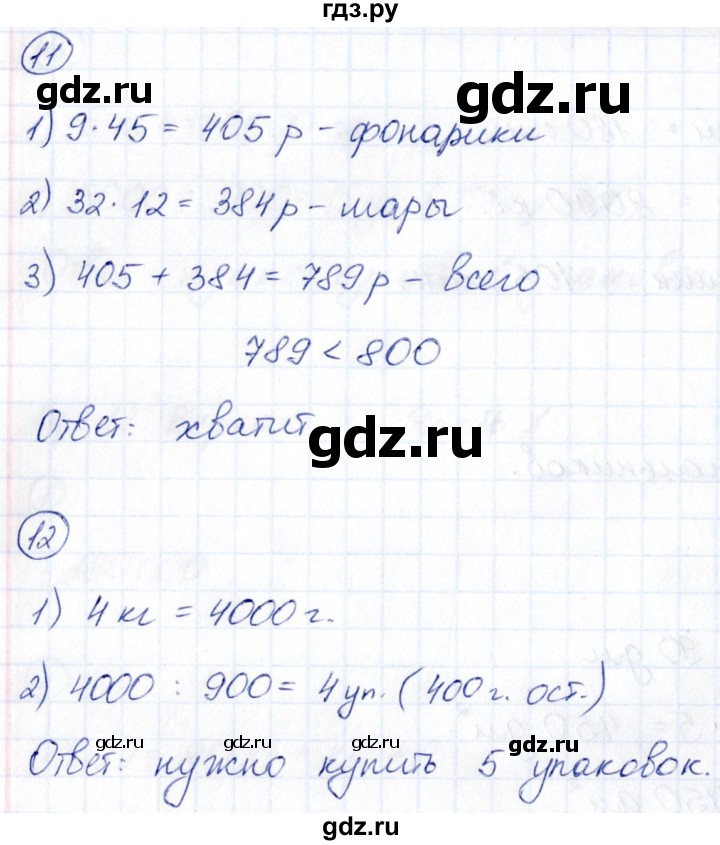 гдз.ру
11
gdz.ru gdz.ru
1) 9·45 = 405 р – фонарики
2) 32·12 = 384р – шары
gdz.ru
3) 405 + 384 = 789 р – всего
789 < 800
Ответ: хватит
gdz.ru
12
1) 4 кг = 4000 г.
2) 4000 : 900 = 4 уп. (400 г. ост.)
gdz.ru gdz.ru gdz.ru gdz.ru
Ответ: нужно купить 5 упаковок.
gdz.ru